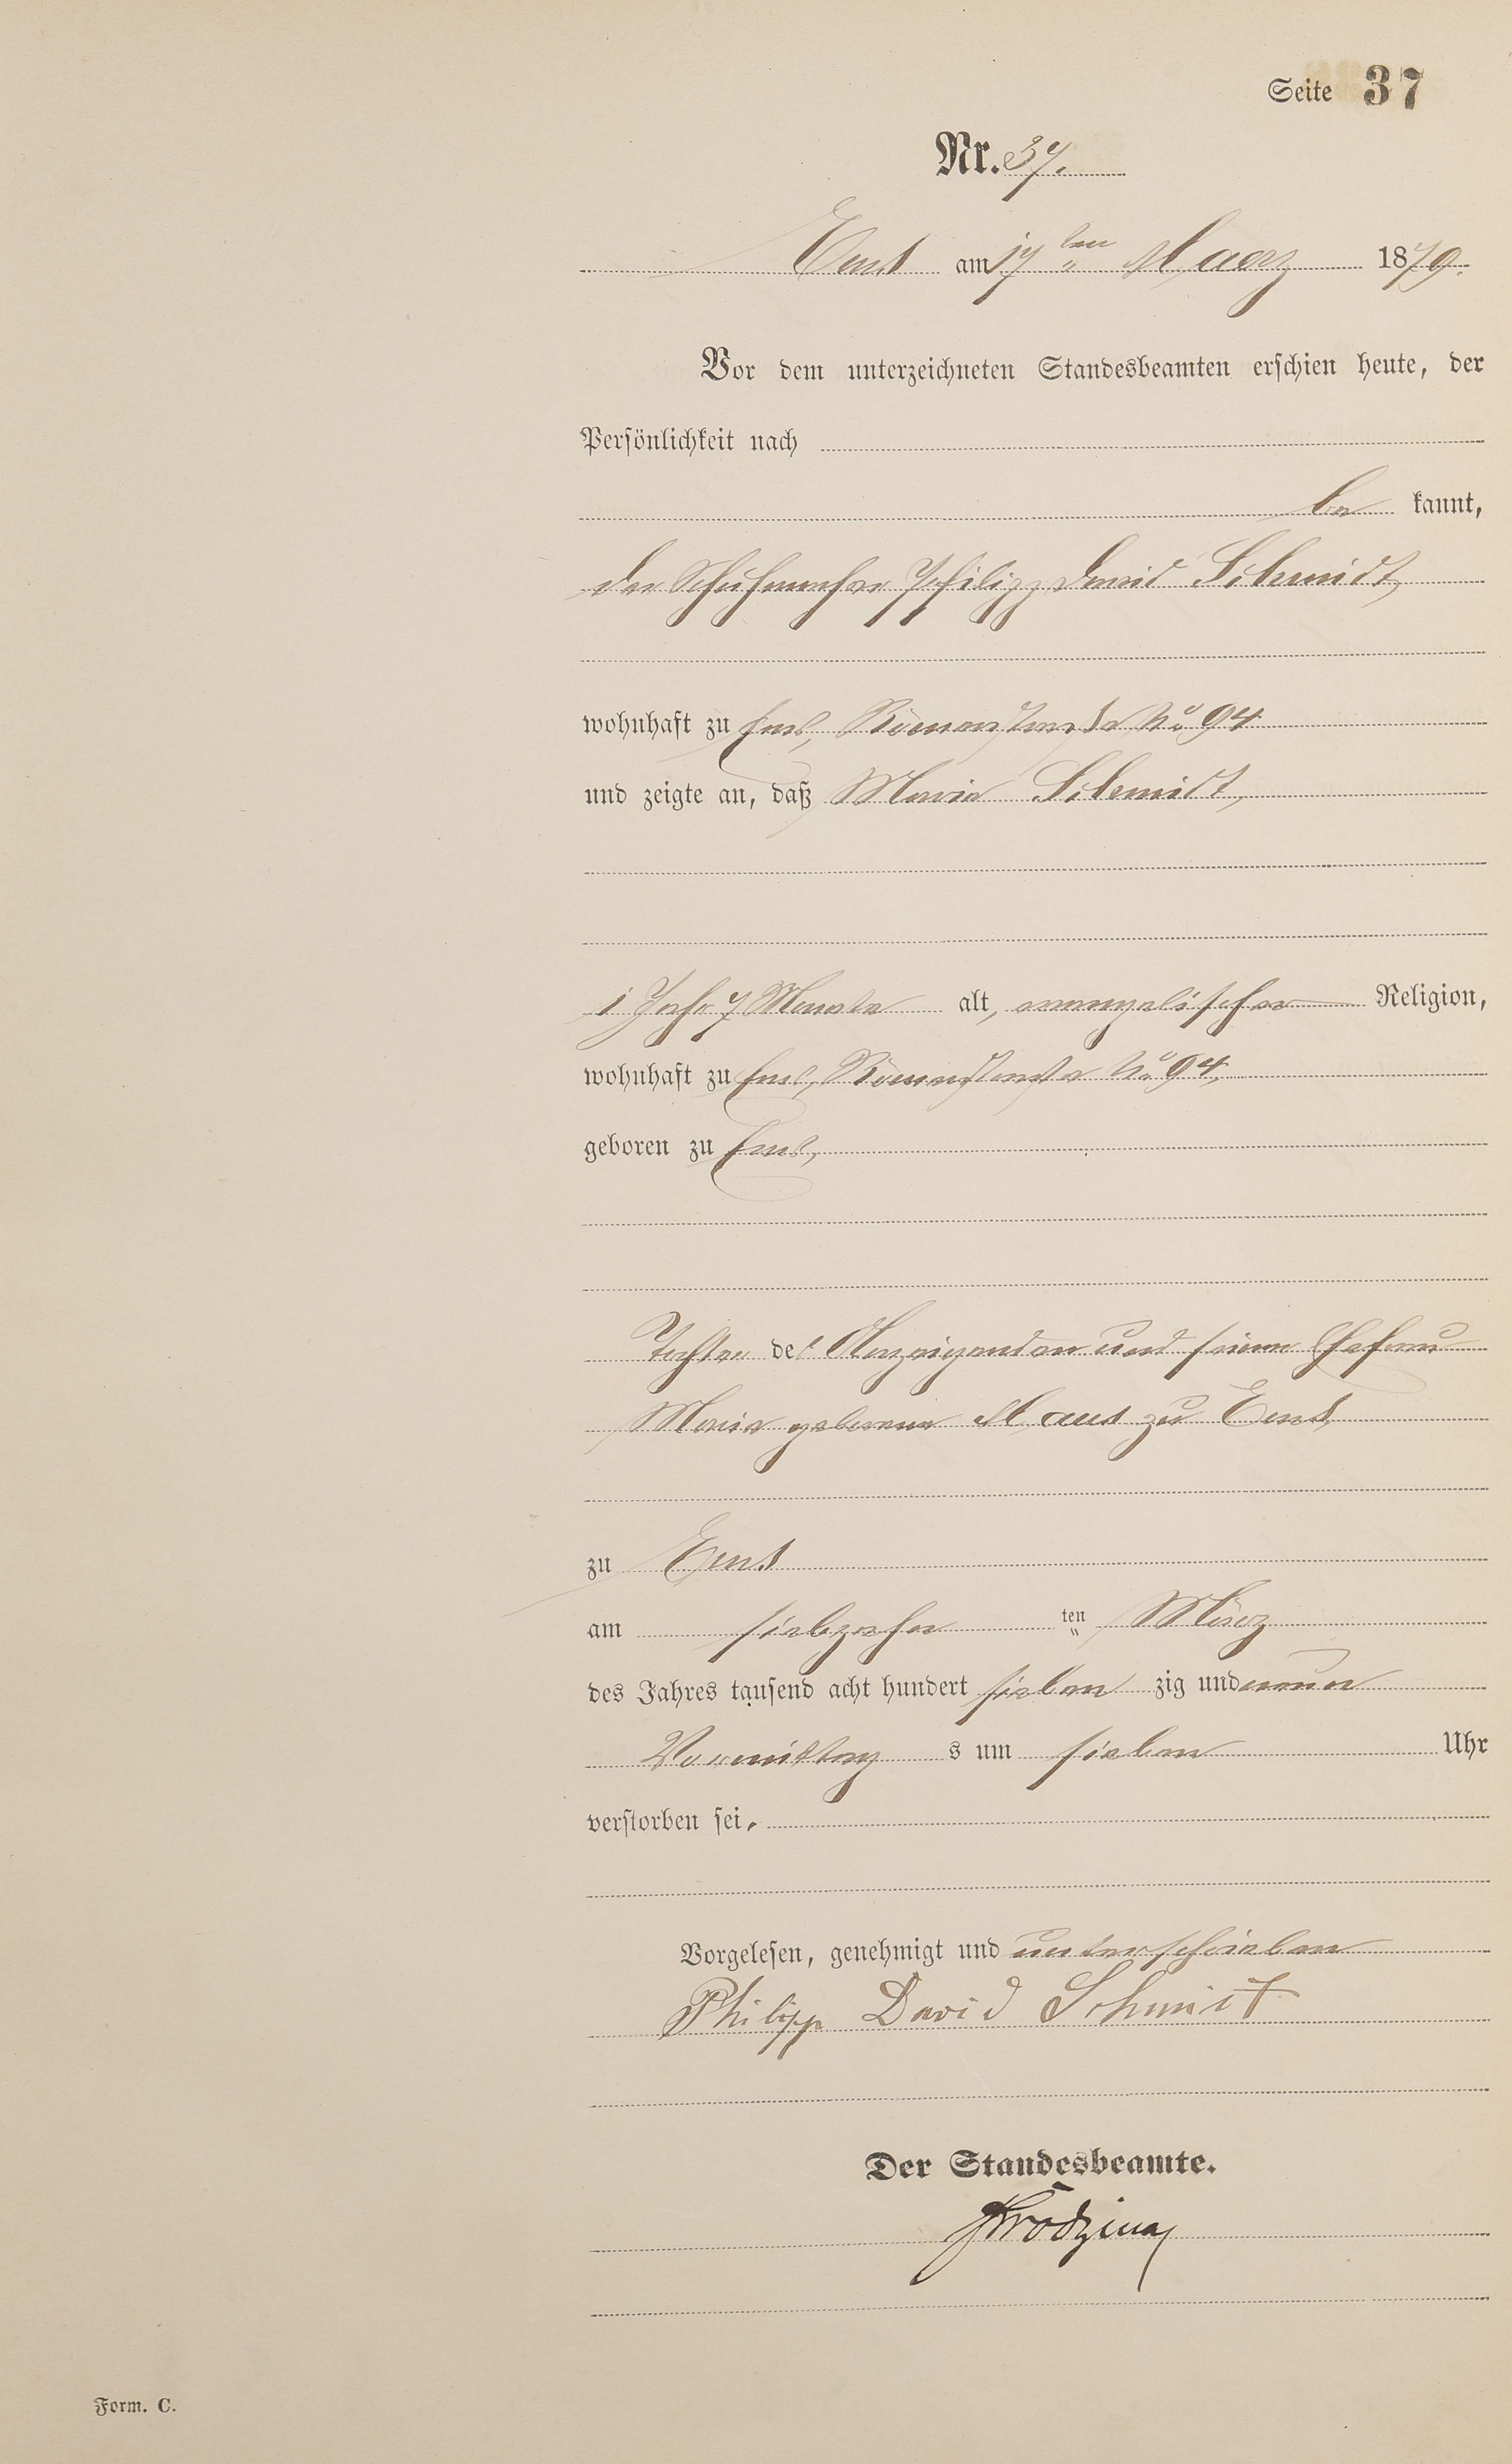 Seite 37
Nr. 37.
Ems am 17ten Maerz 1879.
Vor dem unterzeichneten Standesbeamten erschien heute, der
Persönlichkeit nach
be kannt,
der Schuhmacher Philipp David Schmidt,
wohnhaft zu Ems, Römerstraße No 94
und zeigte an, daß Maria Schmidt,
1 Jahr 7 Monate alt, evangelischer Religion,
wohnhaft zu Ems, Römerstraße No 94,
geboren zu Ems,
Tochter des Anzeigenden und seiner Ehefrau
Maria geborene Maus zu Ems,
zu Ems
am siebzehn ten März
des Jahres tausend acht hundert sieben zig und neun
Vormittag s um sieben Uhr
verstorben sei.
Vorgelesen, genehmigt und unterschrieben
Philipp David Schmidt
Der Standesbeamte.
Form. C.